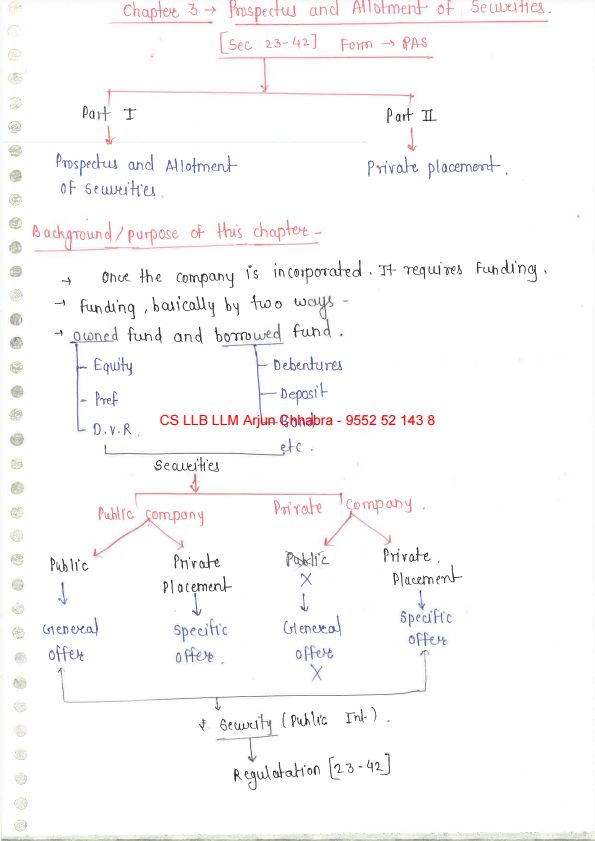 Chapter 3 → Prospectus and Allotment of Securities.
[Sec 23-42] Form → PAS
Part I
Part II
Prospectus and Allotment
of Securities.
Private placement.
Background/purpose of this chapter -
→ Once the company is incorporated. It requires Funding.
→ funding, basically by two ways -
→ owned fund and borrowed fund.
- Equity
- Debentures
- Pref
- Deposit
CS LLB LLM Arjun Chhabra - 9552 52 143 8
- D.V.R.
etc.
Securities
Public company
Private company.
Public
Private
Placement
Public
X
Private.
Placement
General
offer
Specific
offer.
General
offer
X
Specific
offer
Security (Public Int).
Regulatation [23-42]